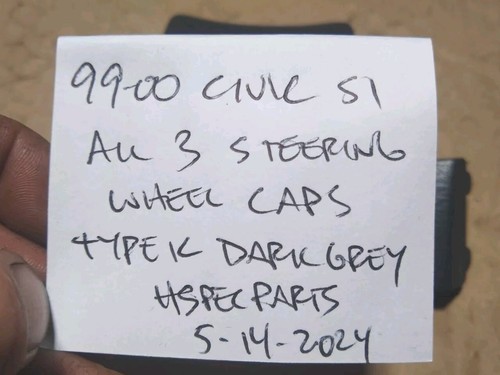 99-00 CIVIC SI
ALL 3 STEERING
WHEEL CAPS
TYPE K DARK GREY
HSPECPARTS
5-14-2024